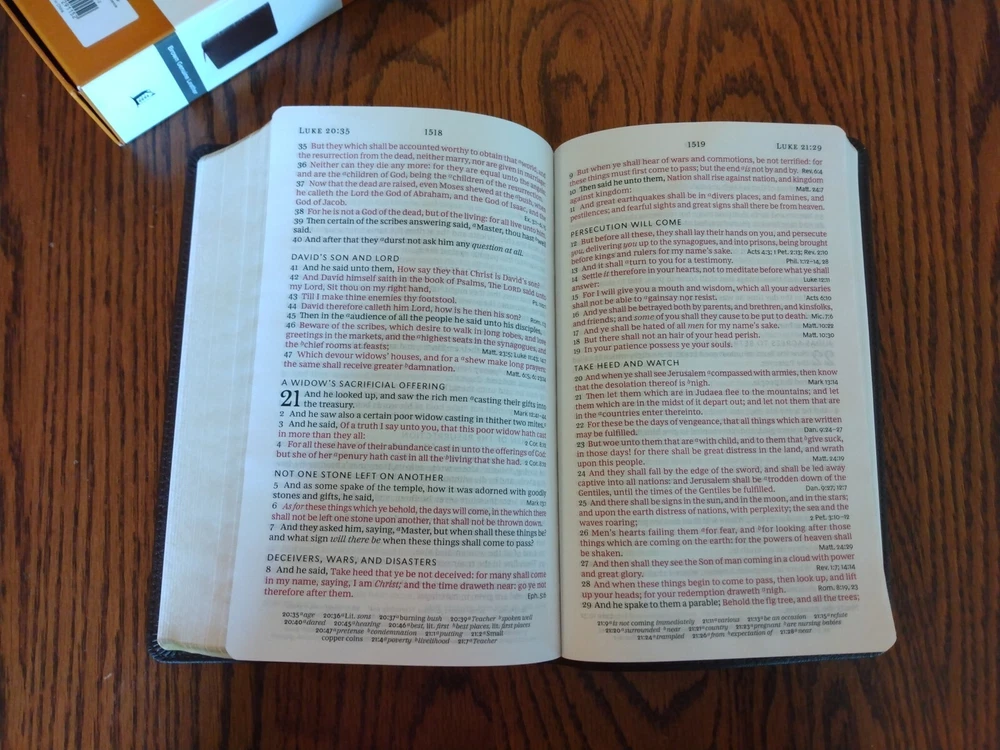 Brown Genuine Leather
LUKE 20:35 1518
35 But they which shall be accounted worthy to obtain that world, and
the resurrection from the dead, neither marry, nor are given in marriage:
36 Neither can they die any more: for they are equal unto the angels;
and are the children of God, being the children of the resurrection.
37 Now that the dead are raised, even Moses shewed at the bush, when
he calleth the Lord the God of Abraham, and the God of Isaac, and the
God of Jacob.
38 For he is not a God of the dead, but of the living: for all live unto him.
39 Then certain of the scribes answering said, Master, thou hast well
said.
40 And after that they durst not ask him any question at all.
DAVID'S SON AND LORD
41 And he said unto them, How say they that Christ is David's son?
42 And David himself saith in the book of Psalms, The LORD said unto
my Lord, Sit thou on my right hand,
43 Till I make thine enemies thy footstool.
44 David therefore calleth him Lord, how is he then his son?
45 Then in the audience of all the people he said unto his disciples,
46 Beware of the scribes, which desire to walk in long robes, and love
greetings in the markets, and the highest seats in the synagogues, and
the chief rooms at feasts;
47 Which devour widows' houses, and for a shew make long prayers:
the same shall receive greater damnation. Matt. 6:5, 6; 23:14
A WIDOW'S SACRIFICIAL OFFERING
21 And he looked up, and saw the rich men casting their gifts into
the treasury. Mark 12:41-44
2 And he saw also a certain poor widow casting in thither two mites.
3 And he said, Of a truth I say unto you, that this poor widow hath cast
in more than they all: 2 Cor. 8:12
4 For all these have of their abundance cast in unto the offerings of God:
but she of her penury hath cast in all the living that she had. 2 Cor. 8:12
NOT ONE STONE LEFT ON ANOTHER
5 And as some spake of the temple, how it was adorned with goodly
stones and gifts, he said, Mark 13:1
6 As for these things which ye behold, the days will come, in the which there
shall not be left one stone upon another, that shall not be thrown down.
7 And they asked him, saying, Master, but when shall these things be?
and what sign will there be when these things shall come to pass?
DECEIVERS, WARS, AND DISASTERS
8 And he said, Take heed that ye be not deceived: for many shall come
in my name, saying, I am Christ; and the time draweth near: go ye not
therefore after them. Eph. 5:6
20:35 age 20:36 Lit. sons 20:37 burning bush 20:39 Teacher spoken well
20:40 dared 20:45 hearing 20:46 best, lit. first best places, lit. first places
20:47 pretense condemnation 21:1 putting 21:2 Small
copper coins 21:4 poverty livelihood 21:7 Teacher
1519 LUKE 21:29
9 But when ye shall hear of wars and commotions, be not terrified: for
these things must first come to pass; but the end is not by and by. Rev. 6:4
10 Then said he unto them, Nation shall rise against nation, and kingdom
against kingdom: Matt. 24:7
11 And great earthquakes shall be in divers places, and famines, and
pestilences; and fearful sights and great signs shall there be from heaven.
PERSECUTION WILL COME
12 But before all these, they shall lay their hands on you, and persecute
you, delivering you up to the synagogues, and into prisons, being brought
before kings and rulers for my name's sake. Acts 4:3; 1 Pet. 2:13; Rev. 2:10
13 And it shall turn to you for a testimony. Phil. 1:12-14, 28
14 Settle it therefore in your hearts, not to meditate before what ye shall
answer: Luke 12:11
15 For I will give you a mouth and wisdom, which all your adversaries
shall not be able to gainsay nor resist. Acts 6:10
16 And ye shall be betrayed both by parents, and brethren, and kinsfolks,
and friends; and some of you shall they cause to be put to death. Mic. 7:6
17 And ye shall be hated of all men for my name's sake. Matt. 10:22
18 But there shall not an hair of your head perish. Matt. 10:30
19 In your patience possess ye your souls.
TAKE HEED AND WATCH
20 And when ye shall see Jerusalem compassed with armies, then know
that the desolation thereof is nigh. Mark 13:14
21 Then let them which are in Judaea flee to the mountains; and let
them which are in the midst of it depart out; and let not them that are
in the countries enter thereinto.
22 For these be the days of vengeance, that all things which are written
may be fulfilled. Dan. 9:24-27
23 But woe unto them that are with child, and to them that give suck,
in those days! for there shall be great distress in the land, and wrath
upon this people. Matt. 24:19
24 And they shall fall by the edge of the sword, and shall be led away
captive into all nations: and Jerusalem shall be trodden down of the
Gentiles, until the times of the Gentiles be fulfilled. Dan. 9:27; 12:7
25 And there shall be signs in the sun, and in the moon, and in the stars;
and upon the earth distress of nations, with perplexity; the sea and the
waves roaring; 2 Pet. 3:10-12
26 Men's hearts failing them for fear, and for looking after those
things which are coming on the earth: for the powers of heaven shall
be shaken. Matt. 24:29
27 And then shall they see the Son of man coming in a cloud with power
and great glory. Rev. 1:7; 14:14
28 And when these things begin to come to pass, then look up, and lift
up your heads; for your redemption draweth nigh. Rom. 8:19, 23
29 And he spake to them a parable; Behold the fig tree, and all the trees;
21:9 is not coming immediately 21:11 various 21:13 be an occasion 21:15 refuse
21:20 surrounded near 21:21 country 21:23 pregnant are nursing babies
21:24 trampled 21:26 from expectation of 21:28 near